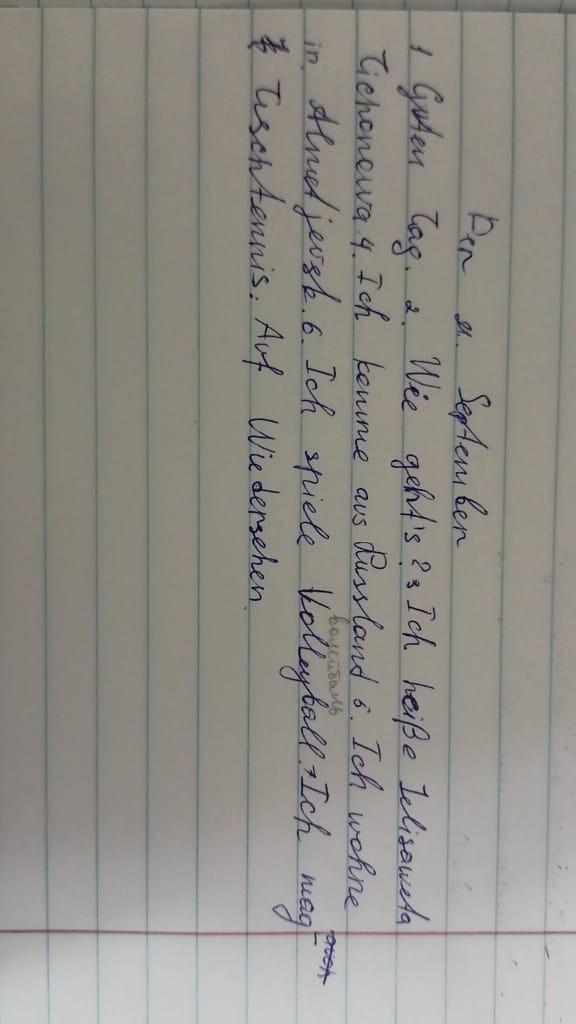 Den 21. September
1 Guten Tag. 2. Wie geht's? 3 Ich heiße Jelisaweta
Tichonowa. 4. Ich komme aus Russland 5. Ich wohne
in Almetjevsk. 6. Ich spiele Volleyball. 7 Ich mag
волейболь
Tischtennis. Auf Wiedersehen.